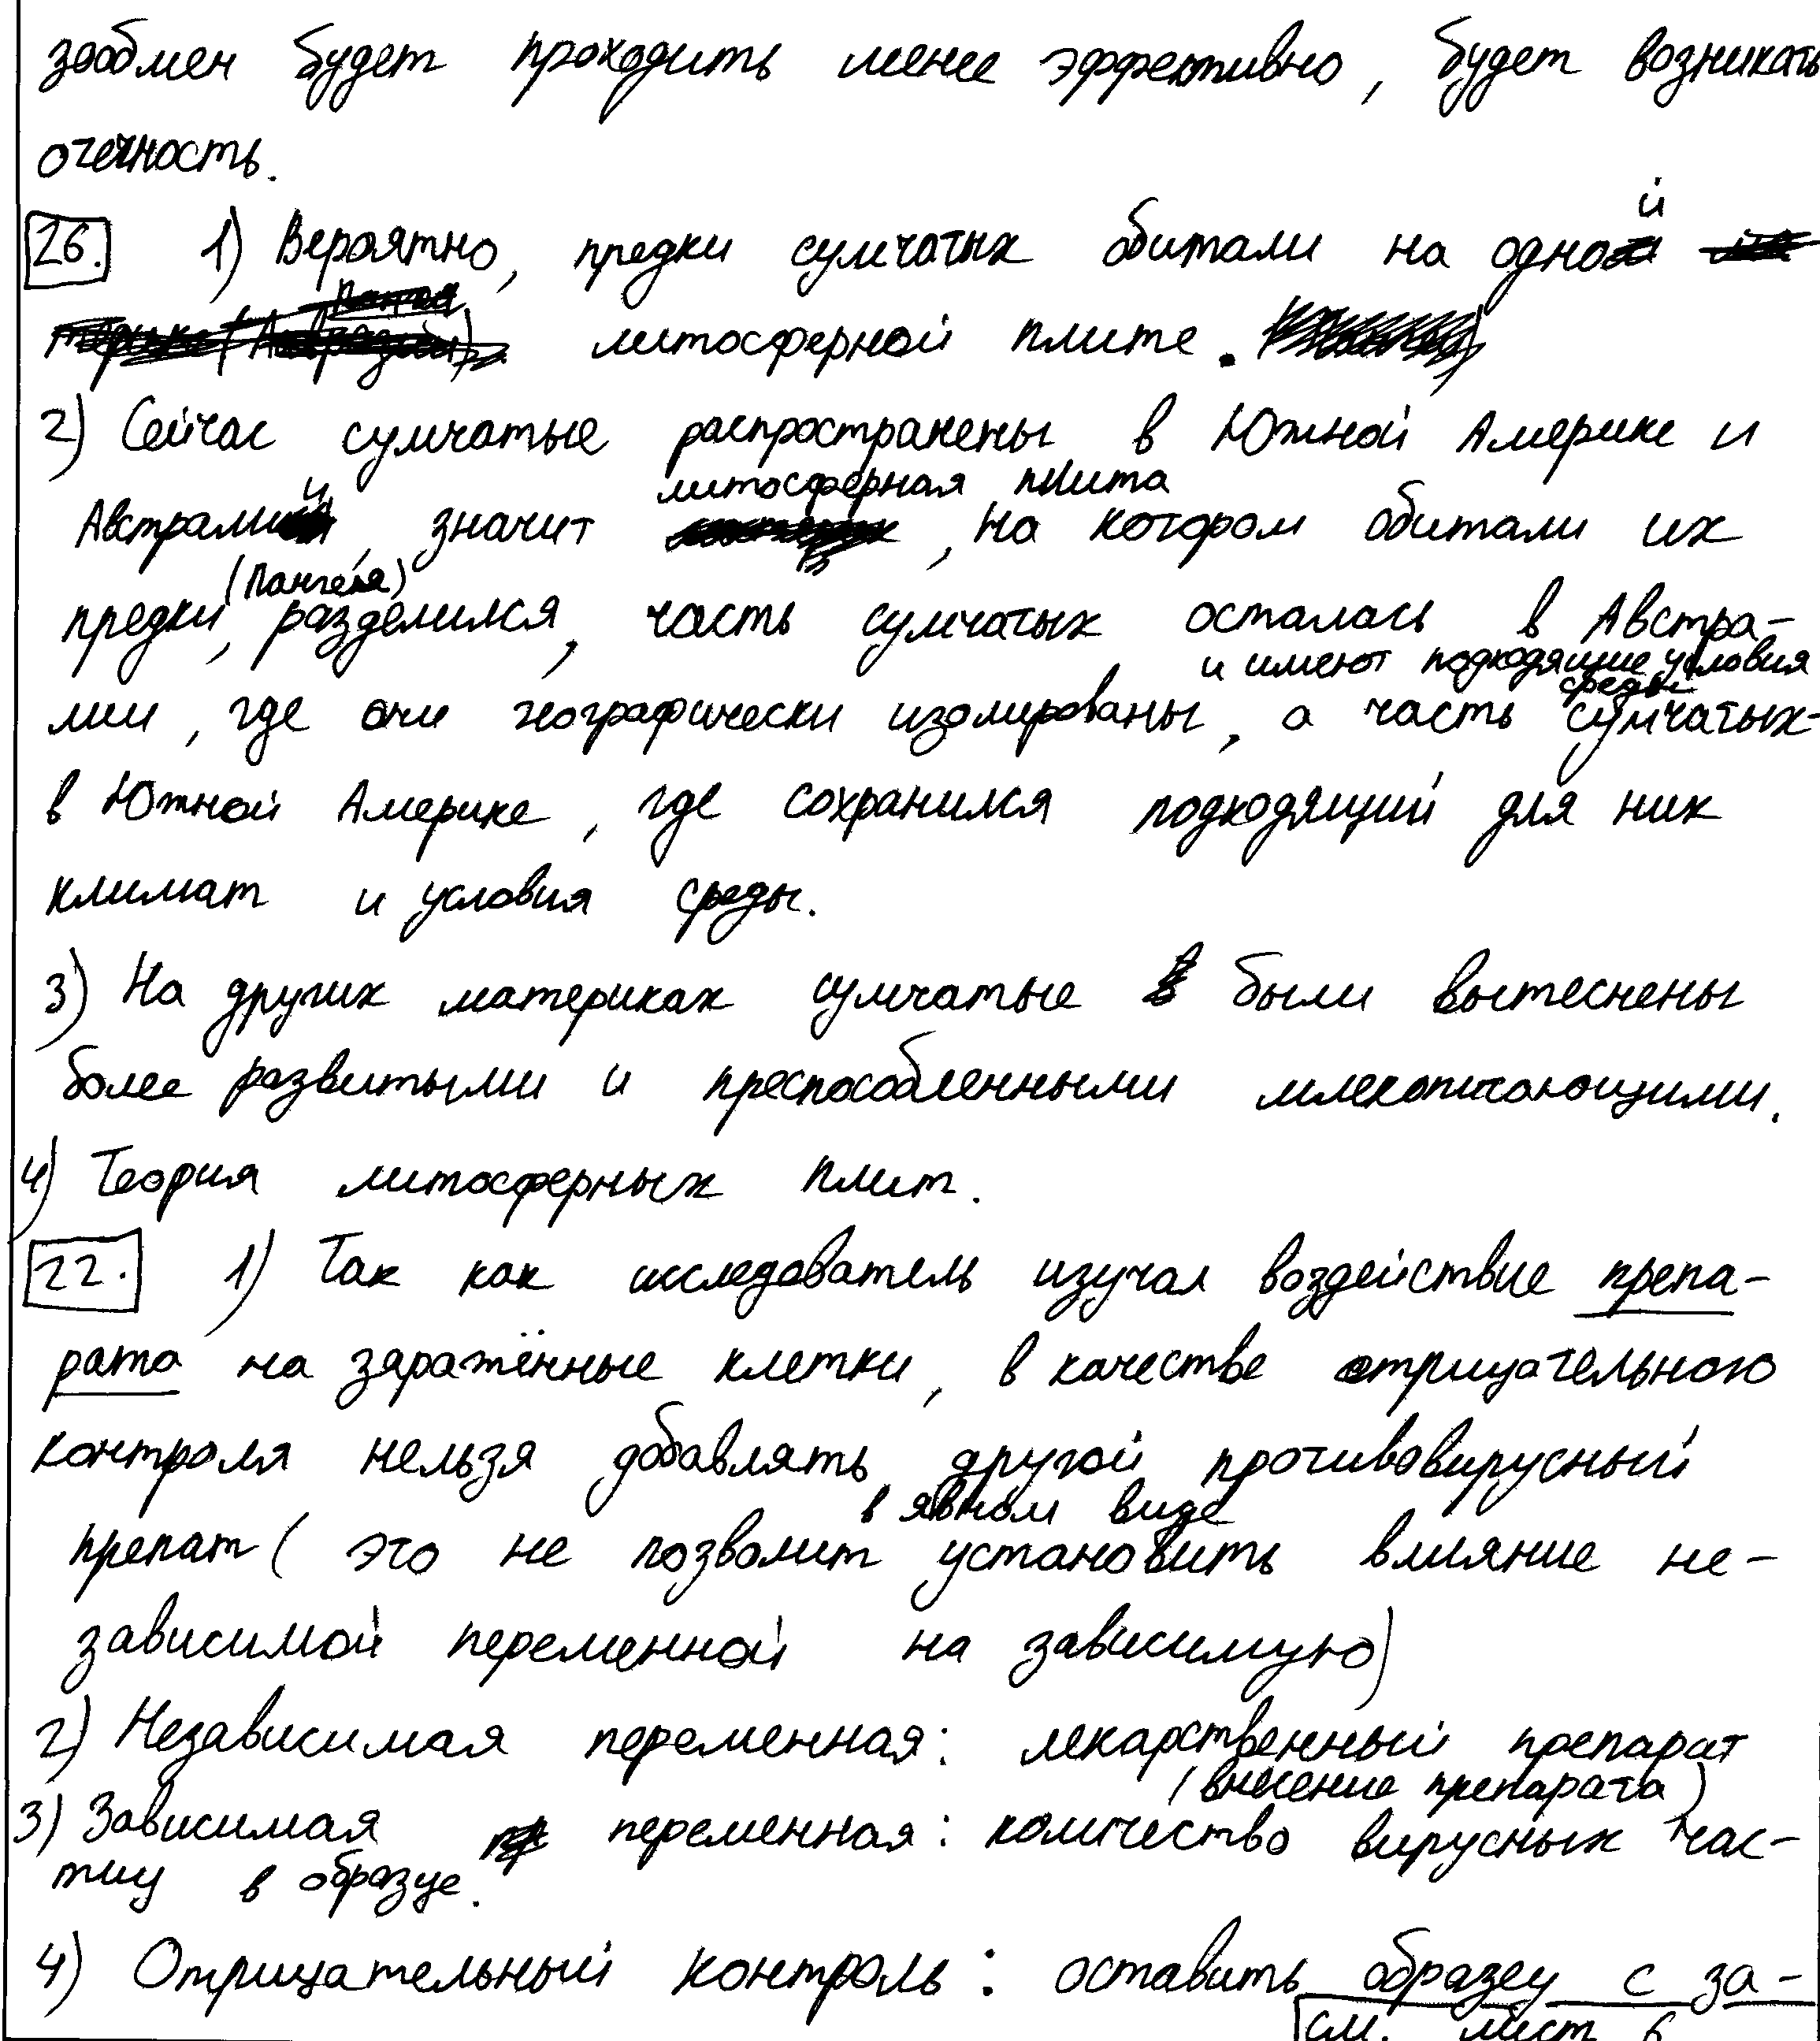 зообмен будет проходить менее эффективно, будет возникать
отечность.
26. 1) Вероятно, предки сумчатых обитали на одной
литосферной плите.
2) Сейчас сумчатые распространены в Южной Америке и
литосферная плита
Австралии, значит , на котором обитали их
(Пангея)
предки, разделился, часть сумчатых осталась в Австра-
и имеют подходящие условия
среды
лии, где они географически изолированы, а часть сумчатых-
в Южной Америке, где сохранился подходящий для них
климат и условия среды.
3) На других материках сумчатые были вытеснены
более развитыми и преспособленными млекопитающими.
4) Теория литосферных плит.
22. 1) Так как исследователь изучал воздействие препа-
рата на заражённые клетки, в качестве отрицательного
контроля нельзя добавлять другой противовирусный
в явном виде
препат (это не позволит установить влияние не-
зависимой переменной на зависимую)
2) Независимая переменная: лекарственный препарат
(внесение препарата)
3) Зависимая переменная: количество вирусных час-
тиц в образце.
4) Отрицательный контроль: оставить образец с за-
см. лист 6